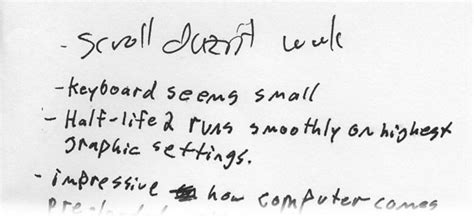 - scroll duzn't work
- Keyboard seems small
- Half-life 2 runs smoothly on highest
graphic settings.
- impressive how computer comes